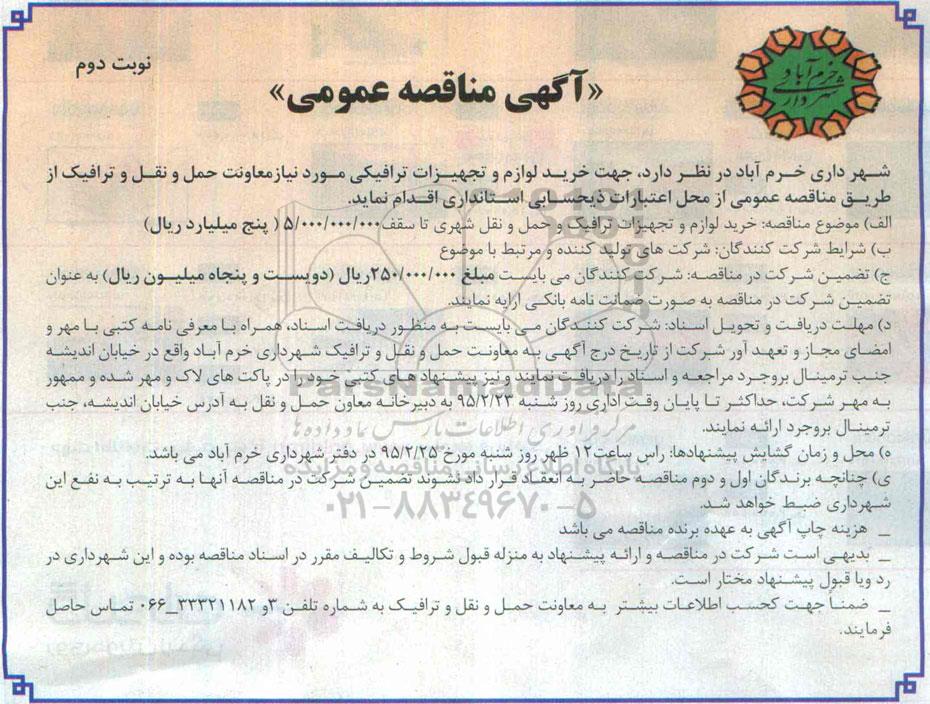 نوبت دوم
«آگهی مناقصه عمومی»
خرم آباد
شهرداری
شهر داری خرم آباد در نظر دارد، جهت خرید لوازم و تجهیزات ترافیکی مورد نیازمعاونت حمل و نقل و ترافیک از
طریق مناقصه عمومی از محل اعتبارات ذیحسابی استانداری اقدام نماید.
الف) موضوع مناقصه: خرید لوازم و تجهیزات ترافیک و حمل و نقل شهری تا سقف۵/۰۰۰/۰۰۰/۰۰۰ ( پنج میلیارد ریال)
ب) شرایط شرکت کنندگان: شرکت های تولید کننده و مرتبط با موضوع
ج) تضمین شرکت در مناقصه: شرکت کنندگان می بایست مبلغ ۲۵۰/۰۰۰/۰۰۰ریال (دویست و پنجاه میلیون ریال) به عنوان
تضمین شرکت در مناقصه به صورت ضمانت نامه بانکی ارایه نمایند.
د) مهلت دریافت و تحویل اسناد: شرکت کنندگان می بایست به منظور دریافت اسناد، همراه با معرفی نامه کتبی با مهر و
امضای مجاز و تعهد آور شرکت از تاریخ درج آگهی به معاونت حمل و نقل و ترافیک شهرداری خرم آباد واقع در خیابان اندیشه
جنب ترمینال بروجرد مراجعه و اسناد را دریافت نمایند و نیز پیشنهاد های کتبی خود را در پاکت های لاک و مهر شده و ممهور
به مهر شرکت، حداکثر تا پایان وقت اداری روز شنبه ۹۵/۲/۲۳ به دبیرخانه معاون حمل و نقل به آدرس خیابان اندیشه، جنب
ترمینال بروجرد ارائه نمایند.
ه) محل و زمان گشایش پیشنهادها: راس ساعت۱۲ ظهر روز شنبه مورخ ۹۵/۲/۲۵ در دفتر شهرداری خرم آباد می باشد.
ی) چنانچه برندگان اول و دوم مناقصه حاضر به انعقاد قرار داد نشوند تضمین شرکت در مناقصه آنها به ترتیب به نفع این
شهرداری ضبط خواهد شد.
_ هزینه چاپ آگهی به عهده برنده مناقصه می باشد
_ بدیهی است شرکت در مناقصه و ارائه پیشنهاد به منزله قبول شروط و تکالیف مقرر در اسناد مناقصه بوده و این شهرداری در
رد ویا قبول پیشنهاد مختار است.
_ ضمناً جهت کحسب اطلاعات بیشتر به معاونت حمل و نقل و ترافیک به شماره تلفن ۳و ۳۳۳۲۱۱۸۲_۰۶۶ تماس حاصل
فرمایند.
ParsNamadData
مرکز فرآوری اطلاعات پارس نماد داده ها
پایگاه اطلاع رسانی مناقصه و مزایده
۰۲۱-۸۸۳۴۹۶۷۰-۵